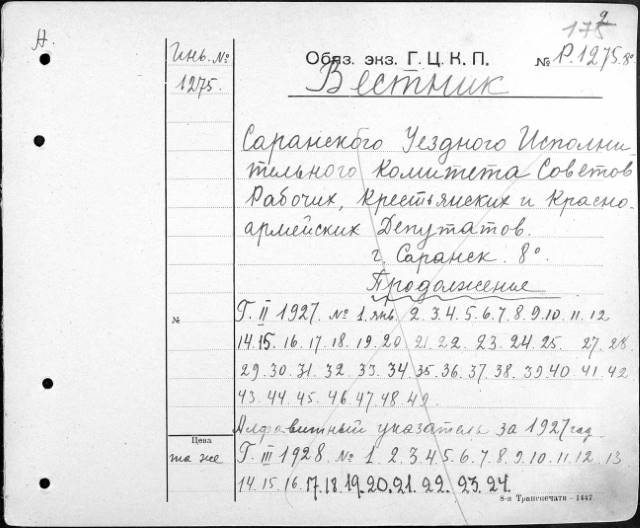 175
А.
Инв. №
1275.
Обяз. экз. Г. Ц. К. П.
№ Р.1275. 8°
Вестник
Саранского Уездного Исполни-
тельного Комитета Советов
Рабочих, Крестьянских и Красно-
армейских Депутатов.
г. Саранск. 8°.
Продолжение
№
Г. II 1927. № 1. янв. 2. 3. 4. 5. 6. 7. 8. 9. 10. 11. 12
14. 15. 16. 17. 18. 19. 20 21. 22. 23. 24. 25. 27. 28.
29. 30. 31. 32 33. 34. 35. 36. 37. 38. 39. 40. 41. 42
43. 44. 45. 46. 47. 48. 49.
Алфавитный указатель за 1927 год
Цена
та же
Г. III 1928. № 1. 2. 3. 4. 5. 6. 7. 8. 9. 10. 11. 12. 13
14. 15. 16. 17. 18. 19. 20. 21. 22. 23. 24.
8-я Транспечати - 1447